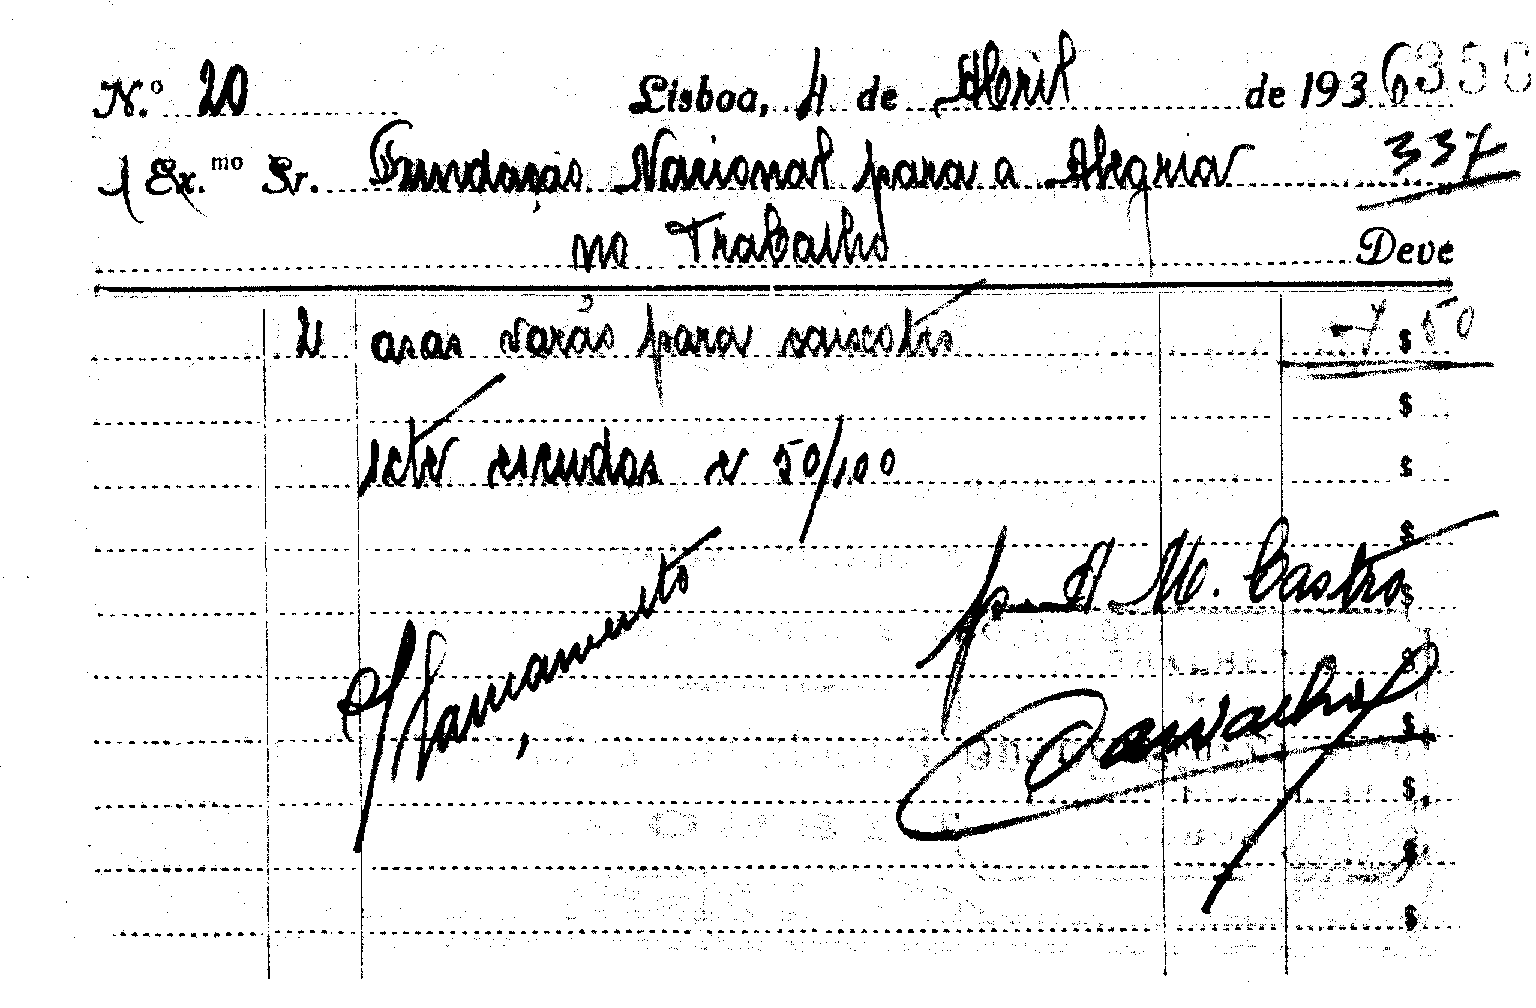 N.º 20 Lisboa, 4 de Abril de 1936 6350
A Ex.mo Sr. Fundação Nacional para a Alegria 337
no Trabalho Deve
2 asas para caixotes 7 $ 50
$
sete escudos e 50/100
$
$
p. A. M. Castro
$
$
Carvalho
$
$
$
$